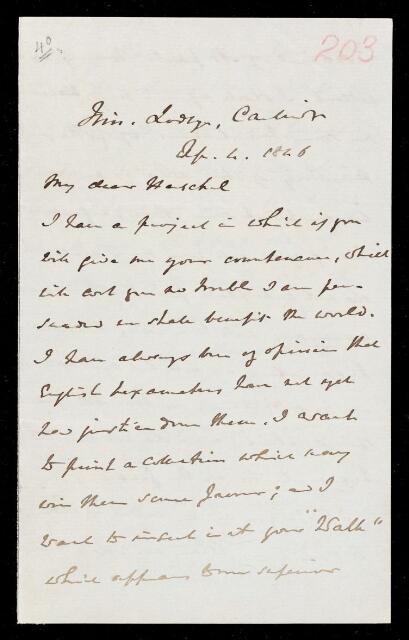 40
203
Trin. Lodge, Cambridge
Ap. 4. 1846
My dear Herschel
I have a project in which if you
will give me your countenance, which
will cost you no trouble I am per-
suaded we shall benefit the world.
I have always been of opinion that
English hexameters have not yet
had justice done them. I want
to print a collection which may
win them some favour; and I
want to insert in it your "Walk"
which appears to me superior